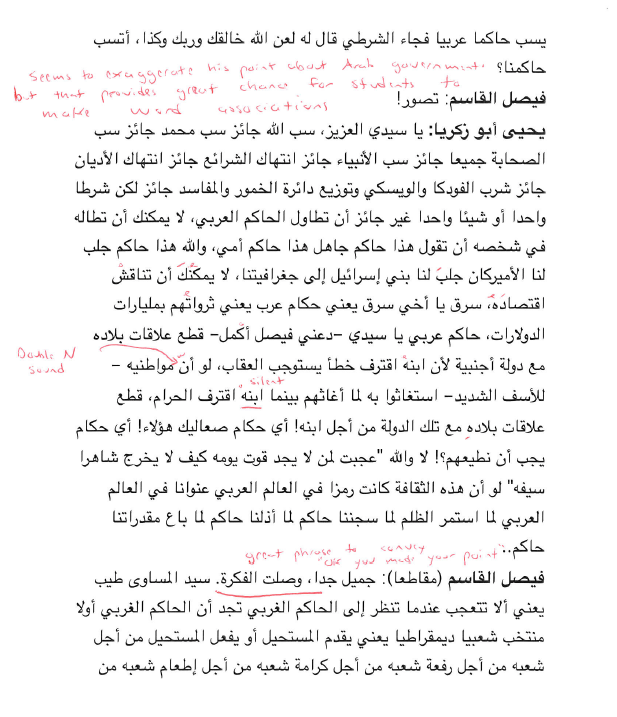 يسب حاكما عربيا فجاء الشرطي قال له لعن الله خالقك وربك وكذا، أتسب
حاكمنا؟
Seems to exaggerate his point about Arab governments
but that provides great chance for students to
make word associations
فيصل القاسم: تصور!
يحيى أبو زكريا: يا سيدي العزيز، سب الله جائز سب محمد جائز سب
الصحابة جميعا جائز سب الأنبياء جائز انتهاك الشرائع جائز انتهاك الأديان
جائز شرب الفودكا والويسكي وتوزيع دائرة الخمور والمفاسد جائز لكن شرطا
واحدا أو شيئا واحدا غير جائز أن تطاول الحاكم العربي، لا يمكنك أن تطاله
في شخصه أن تقول هذا حاكم جاهل هذا حاكم أمي، والله هذا حاكم جلب
لنا الأميركان جلبَ لنا بني إسرائيل إلى جغرافيتنا، لا يمكنُكَ أن تناقشْ
اقتصادَهُ، سرق يا أخي سرق يعني حكام عرب يعني ثرواتُهم بمليارات
الدولارات، حاكم عربي يا سيدي –دعني فيصل أكمل– قطع علاقات بلاده
Double N
sound
مع دولة أجنبية لأن ابنهُ اقترف خطأ يستوجب العقاب، لو أنّ مواطنيه –
silent
للأسف الشديد– استغاثوا به لما أغاثهم بينما ابنه اقترف الحرام، قطع
علاقات بلاده مع تلك الدولة من أجل ابنه! أي حكام صعاليك هؤلاء! أي حكام
يجب أن نطيعهم؟! لا والله "عجبت لمن لا يجد قوت يومه كيف لا يخرج شاهرا
سيفه" لو أن هذه الثقافة كانت رمزا في العالم العربي عنوانا في العالم
العربي لما استمر الظلم لما سجننا حاكم لما أذلنا حاكم لما باع مقدراتنا
حاكم..
great phrase to convey
"ok you made your point"
فيصل القاسم (مقاطعا): جميل جدا، وصلت الفكرة. سيد المساوى طيب
يعني ألا تتعجب عندما تنظر إلى الحاكم الغربي تجد أن الحاكم الغربي أولا
منتخب شعبيا ديمقراطيا يعني يقدم المستحيل أو يفعل المستحيل من أجل
شعبه من أجل رفعة شعبه من أجل كرامة شعبه من أجل إطعام شعبه من